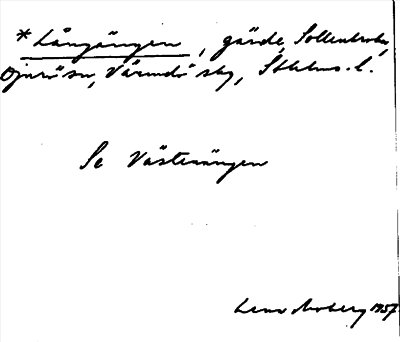 *Långängen, gärde, Sollenkroka,
Djurö sn, Värmdö skg, Sthlms l.
Se Västerängen
Lena Moberg 1957